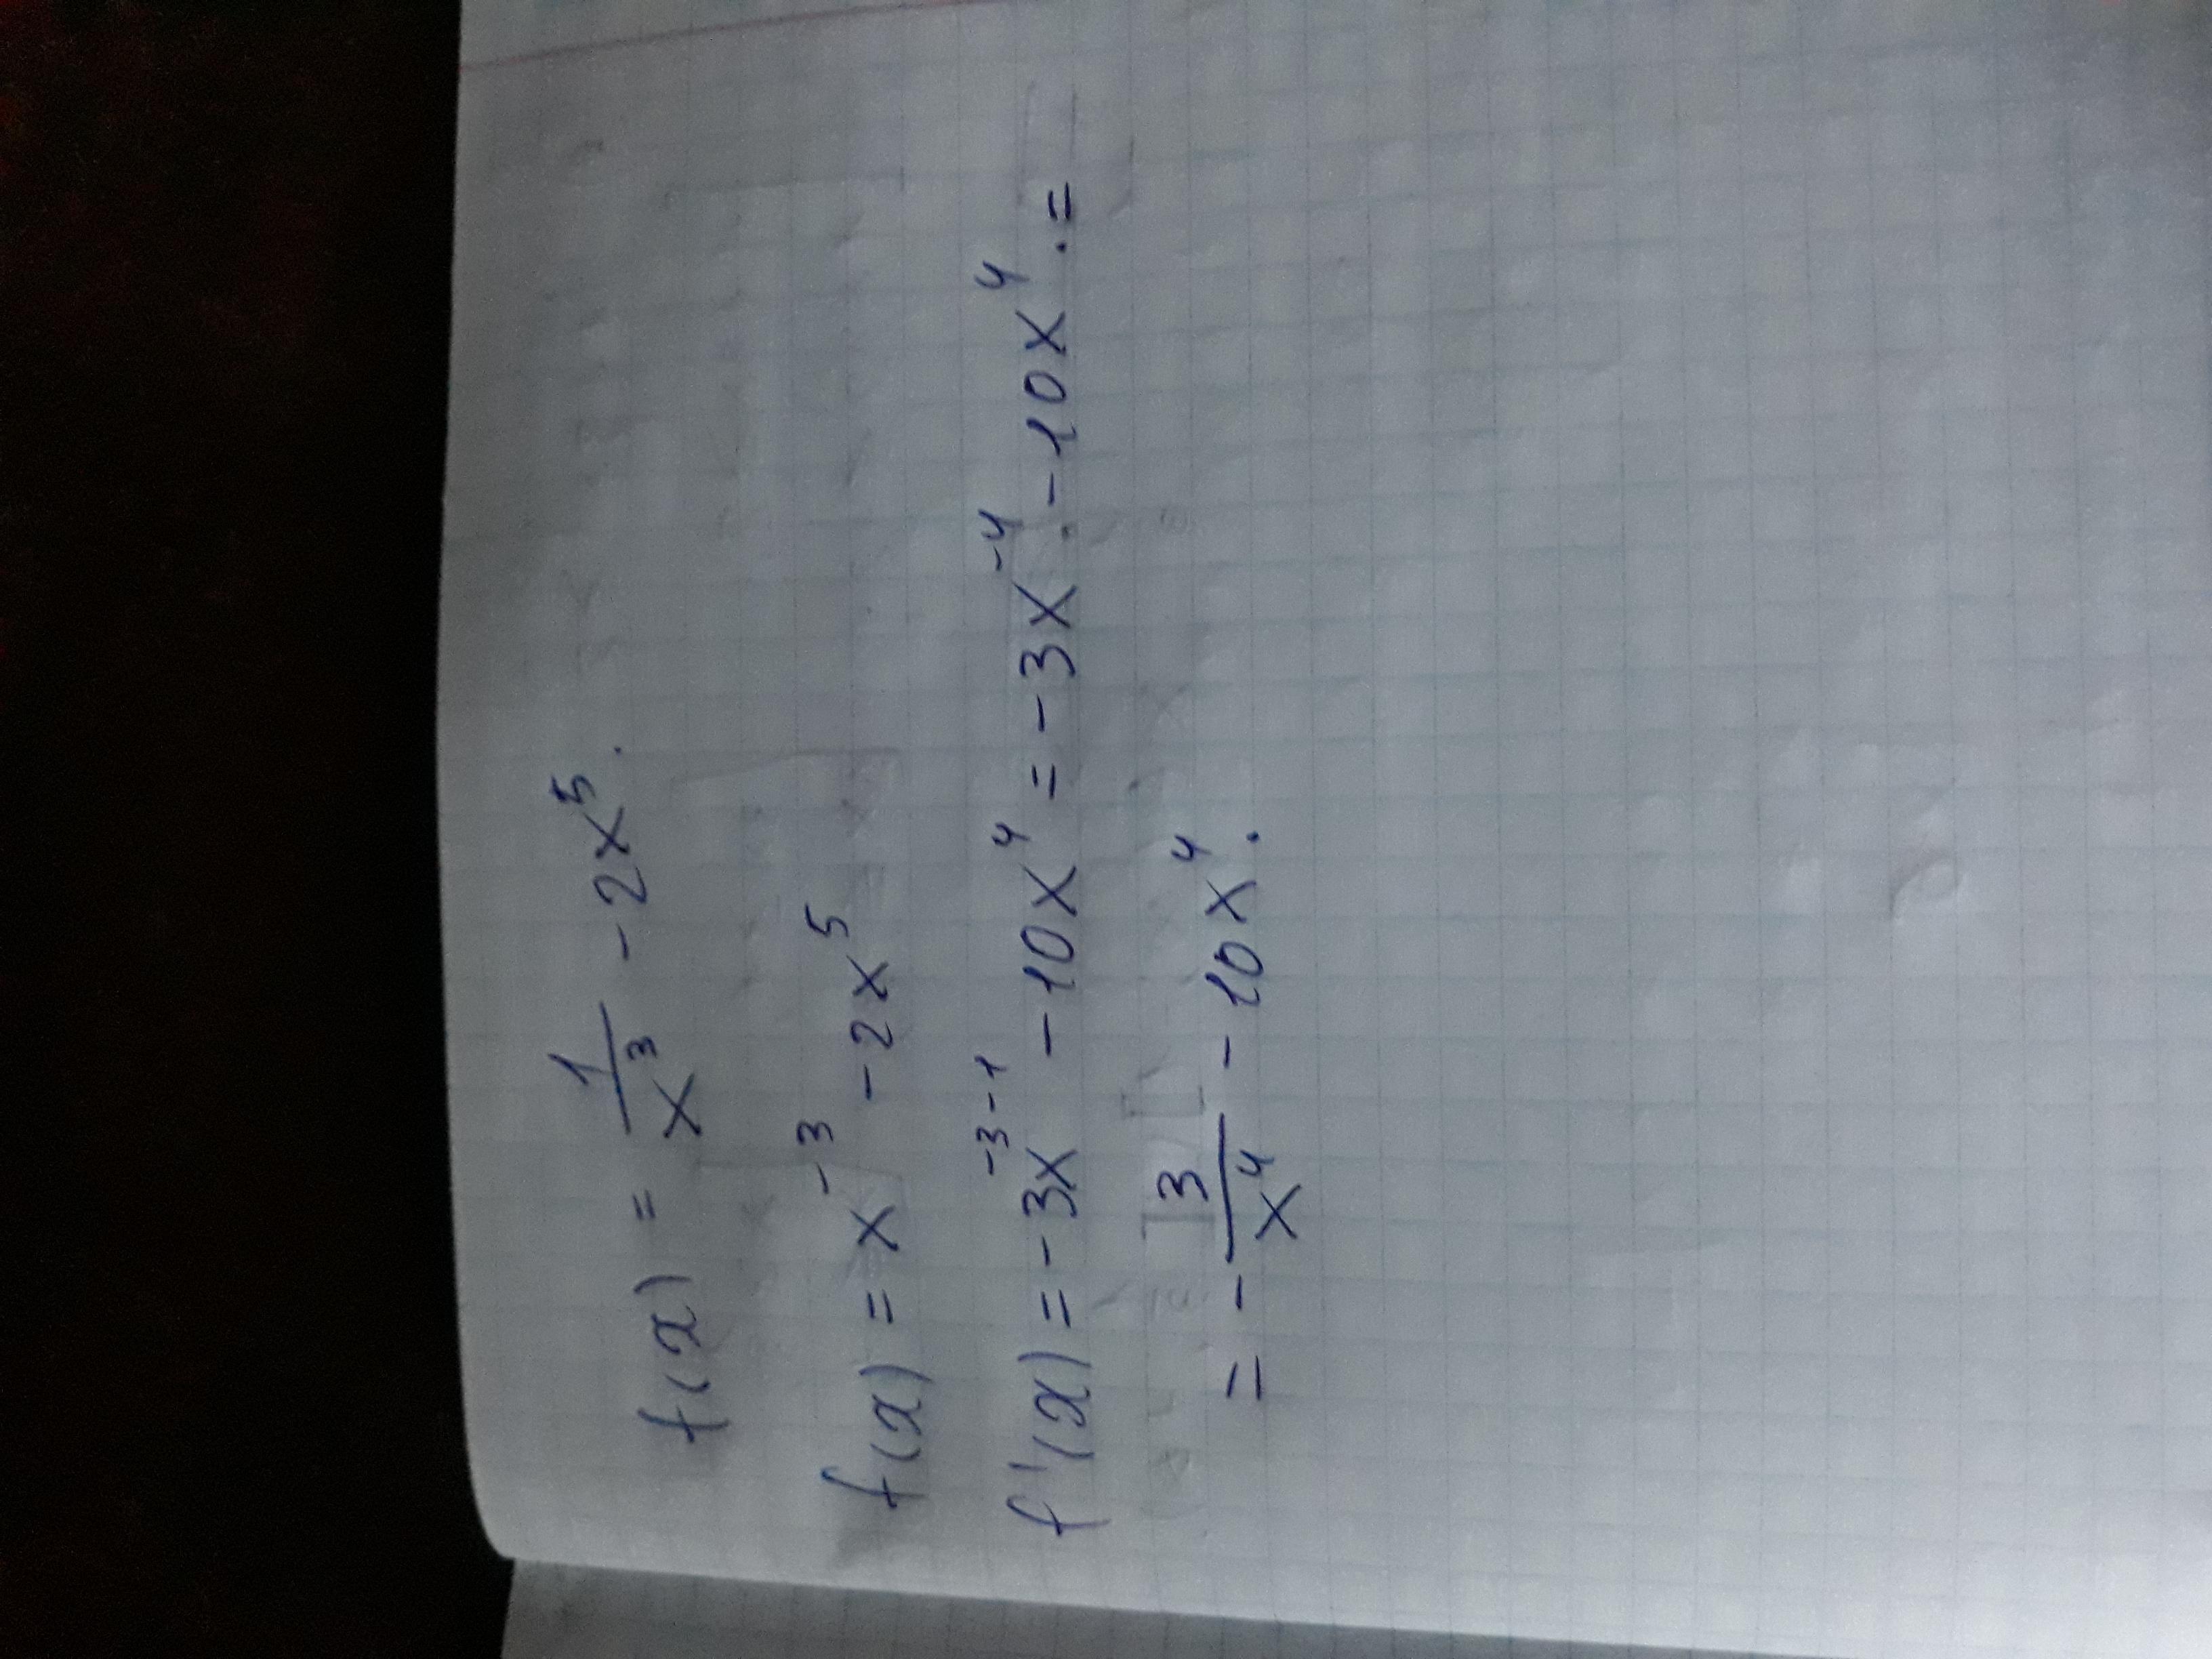 f(x) = 1/x³ - 2x⁵.
f(x) = x⁻³ - 2x⁵
f'(x) = -3x⁻³⁻¹ - 10x⁴ = -3x⁻⁴. - 10x⁴. =
= - 3/x⁴ - 10x⁴.